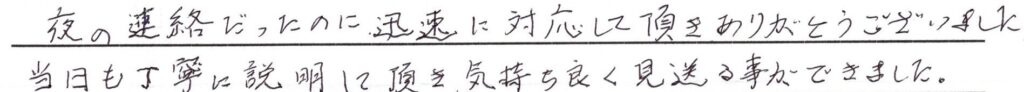 夜の連絡だったのに迅速に対応して頂きありがとうございました
当日も丁寧に説明して頂き気持ち良く見送る事ができました。